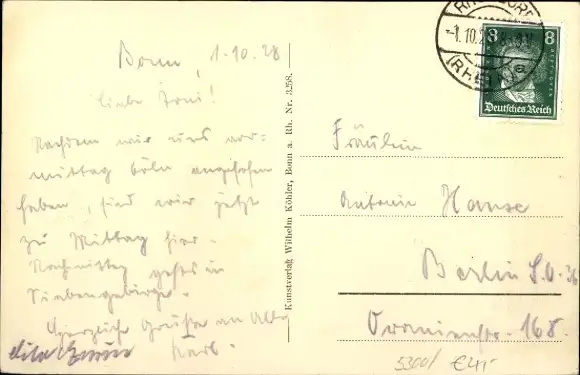 Bonn, 1.10.28
Liebe Toni!
Nachdem wir uns vor-
mittag Cöln angesehen
haben, sind wir jetzt
zu Mittag hier.
Nachmittag gehts in
Siebengebirge.
Herzliche Grüße an Alle
Karl.
Kunstverlag Wilhelm Köhler, Bonn a. Rh. Nr. 3258.
-1.10.2
(RHEIN)
8 8
Deutsches Reich
Fräulein
Antonie Hanse
Berlin S.O. 36
Oranienstr. 168.
5300/ €4,-